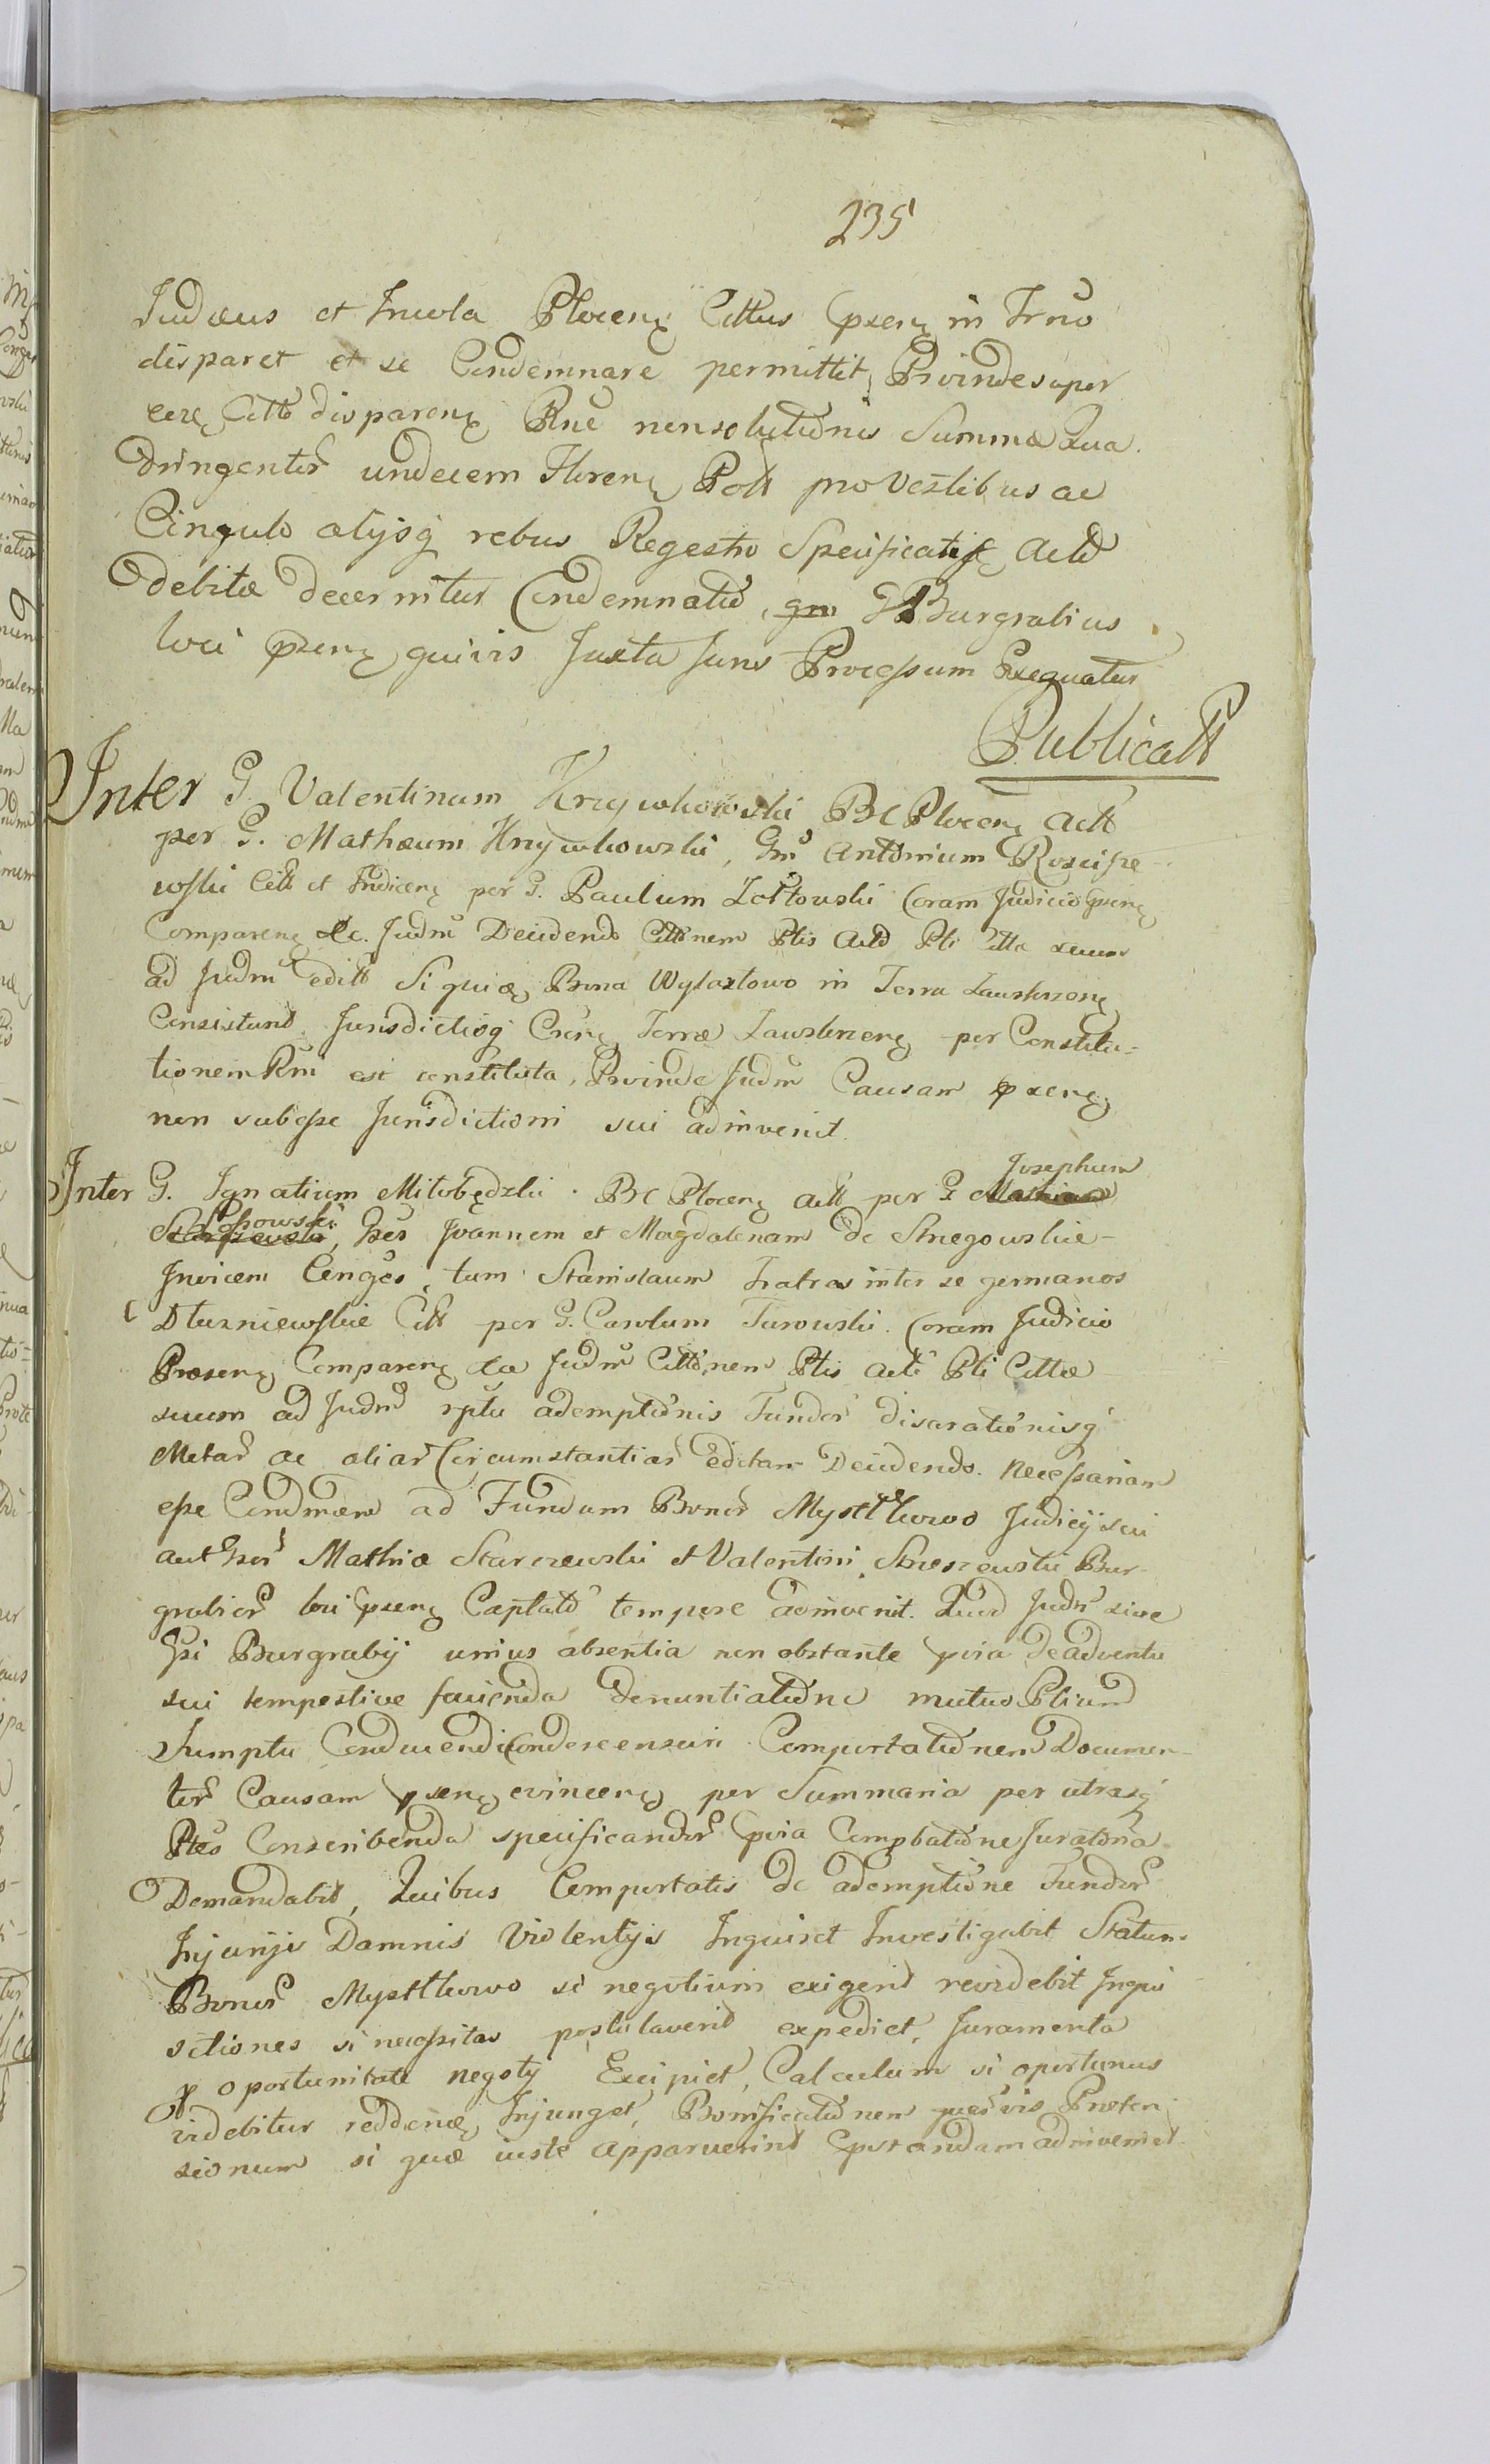 235
Judæus et Incola Plocen Cittus pxen in Trno
disparet et se Condemnare permittit, Proindesuper
eere Citto disparen Rne nonsolutiônis Summæ Qua
dringentor undecem Floren Poll pro Vestibus ac
Cingulo alijsq rebus Regestro Specificatis Actô
debitæ decernitur Condemnatiô, G Burgrabius
loci pxen quivis Juxta Juris Processum Exequatur
Publicatt
Inter G. Valentinum Krzywkowski BC Plocen Actt
per G. Mathæum Krzywkowski, Gm Antonium Rosciſze-
wſki Citt et Judicen per G. Paulum Żołtowski Coram Judicio pxen
Comparen &c. Judm Decidendo Cittônem Ptis Actô Pti Citta suum
ad Judm editt Si quiæ Bona Wylaztowo in Terra Zawskrzen
Consistunt Jurisdictioq Cren Terræ Zawskrzen per Constitu-
tionem Rni est constituta, Proinde Judm Causam pxen
non subeſse Jurisdictioni sui adinvenit.
Inter G. Ignatium Miłobędzki BC Plocen Actt per G Josephum
Łoſsowski, Gses Joannem et Magdalenam de Strzegowskie-
Invicem Conges, tum Stanislaum Fratres inter se germanos
Dłuzniewſkie Citt per G. Carolum Turowski. Coram Judicio
Præsen Comparen &a Judm Cittônem Ptis Actô Pti Cittæ
suum ad Judm rptu ademptiônis Fundor disaratiônisq
Metar ac aliar Circumstantiar editam Decidendo. Neceſsariam
eſse Condmem ad Fundum Bonor Mysttkowo Judicij sui
aut Gsor Mathiæ Starczewski et Valentini Strzeszewski Bur-
grabior loci pxen Captatô tempore adinvenit. Quod Judm sive
Gsi Burgrabij unius absentia non obstante pvia de adventu
sui tempestive facienda denuntiatiône mutuo Ptium
Sumptu Conducendi Condescensuri Comportatiônem Documen-
tor Causam pxen evincen per Summaria per utrasq
Ptes Conscribenda specificandor pvia Compbatiône Juratoria
Demandabit, Quibus Comportatis de ademptiône Fundor
Injurijs Damnis Violentijs Inquiret Investigabit Statum
Bonor Mysttkowo si negotium exigerit revidebit Inqui
sitiones si neceſsitas postulaverit expediet, Juramenta
p oportunitate negotij Excipiet, Calculum si oportunus
videbitur reddenæ Injunget, Bonificatiônem quorvis Præten
sionum si quæ iuste apparuerint pstandam adinveniet.